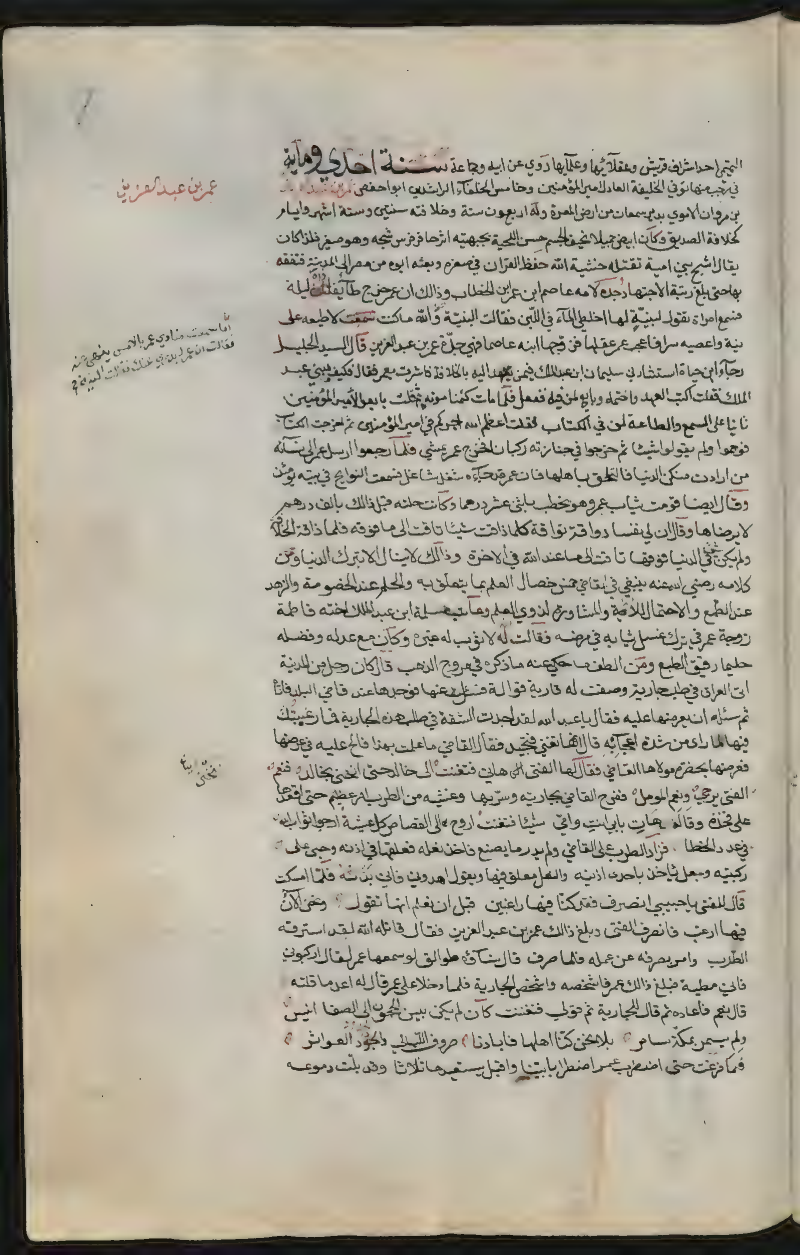 التيمي احد اشراف قريش وعقلائها وعلمائها روي عن ابيه وجماعة سنة احدي وماية
عمر بن عبد العزيز
في رجب منها توفي الخليفة العادل امير المؤمنين وخامس الخلفاء الراشدين ابو حفص عمر بن
بن مروان الاموي بدير سمعان من ارض المعرة وله اربعون سنة وخلافته سنتين وستة اشهر وايام
كخلافة الصديق وكان ابيض جميلا نحيف الجسم حسن اللحية بجبهته اثر حافر فرس شجه وهو صغير فلذا كان
يقال اشج بني امية تقتله خشية الله حفظ القران في صغره وبعثه ابوه من مصر الى المدينة فتفقه
بها حتى بلغ رتبة الاجتهاد جده لامه عاصم ابن عمر بن الخطاب وذالك ان عمر خرج طائفا ذات ليلة
فسمع امراة تقول لبنية لها اخلطي الماء في اللبن فقالت البنية والله ما كنت لاطيعه على
نية واعصيه سرا فاعجب عمر عقلها فزوجها ابنه عاصما فهي جدة عمر بن عبد العزيز قال السيد الجليل
رجاء ابن حياة استشارني سليمان ابن عبد الملك فيمن يعهد اليه بالخلافة فاشرت بعمر فقال فكيف ببني عبد
الملك فقلت اكتب العهد واختمه وبايع لمن فيه ففعل فلما مات كتمنا موته قلت بايعوا لامير المؤمنين
ثانيا على السمع والطاعة لمن في الكتاب فقلت اعظم الله اجركم في امير المؤمنين ثم اخرجت الكتاب
فوجموا ولم يقولوا شيئا ثم خرجوا في جنازته ركبانا وخرج عمر يمشي فلما رجعوا ارسل عمر الى نسائه
من ارادت منكن الدنيا فالتلحق باهلها فان عمر قد جاءه شغل شاغل فسمعت النوايح في بيته يومئذ
وقال ايضا قومت ثياب عمر وهو يخطب باثني عشر درهما وكانت حلته قبل ذالك بالف درهم
لا يرضاها وقال ان لي نفسا ذواقة تواقة كلما ذاقت شيئا تاقت الى ما فوقه فلما ذاقت الخلافة
ولم يكن شيء في الدنيا فوقها تاقت الى ما عند الله في الاخرة وذالك لا ينال الا بترك الدنيا ومن
كلامه رضي الله عنه ينبغي في القاضي خمس خصال العلم بما يتعلق به والحلم عند الخصومة والزهد
عند الطمع والاحتمال للائمة والمشاورة لذوي العلم وعاتب مسلمة ابن عبد الملك اخته فاطمة
زوجة عمر في ترك غسل ثيابه في مرضه فقالت انه لا ثوب له غيره وكان مع عدله وفضله
حليما رقيق الطبع ومن الطف ما حكي عنه ما ذكره في مروج الذهب قال كان رجل من المدينة
اتى العراق في طلب جارية وصفت له قارية قوالة فسئل عنها فوجدها عند قاضي البلد فاتاه
ثم سئله ان يعرضها عليه فقال يا عبد الله لقد ابعدت الشقة في طلب هذه الجارية فما رغبتك
فيها لما راى من شدة اعجابه قال انها تغني فتجيد فقال القاضي ما علمت بهذا فالح عليه في عرضها
فعرضها بحضرة مولاها القاضي فقال لها الفتى هاتي فتغنت الى خالد حتى انخن بخالد فنعم
الفتى يرجى ونعم المؤمل ففرح القاضي بجاريته وسر بها وغشيه من الطرب امر عظيم حتى اقعدها
على فخذه وقال هات بابي انت وامي شيئا فتغنت اروح الى القصاص كل عشية ارجو ثواب الله
في عدد الخطا فزاد الطرب على القاضي ولم يدر ما يصنع فاخذ نعله فعلقها في اذنه وجثى على
ركبتيه وجعل ياخذ باحدى اذنيه والنعل معلق فيها ويقول اهدوني فاني بدنة فلما امسكت
قال للفتى يا حبيبي انصرف فقد كنا فيها راغبين قبل ان نعلم انها تقول ونحن الان
فيها ارغب فانصرف الفتى وبلغ ذالك عمر بن عبد العزيز فقال قاتله الله لقد استرقه
الطرب وامر بصرفه عن عمله فلما صرف قال نساؤه طوالق لو سمعها عمر لقال اركبوني
فاني مطية فبلغ ذالك عمر فاشخصه واشخص الجارية فلما دخلا على عمر قال له اعد ما قلته
قال نعم فاعاده ثم قال للجارية ثم قولي فتغنت كان لم يكن بين الحجون الى الصفا انيس
ولم يسمر بمكة سامر بلا نحن كنا اهلها فابادنا صروف الليالي والجدود العواثر
فما فرغت حتى اضطرب عمر اضطرابا بينا واقبل يستعيدها ثلاثا وقد بلت دموعه